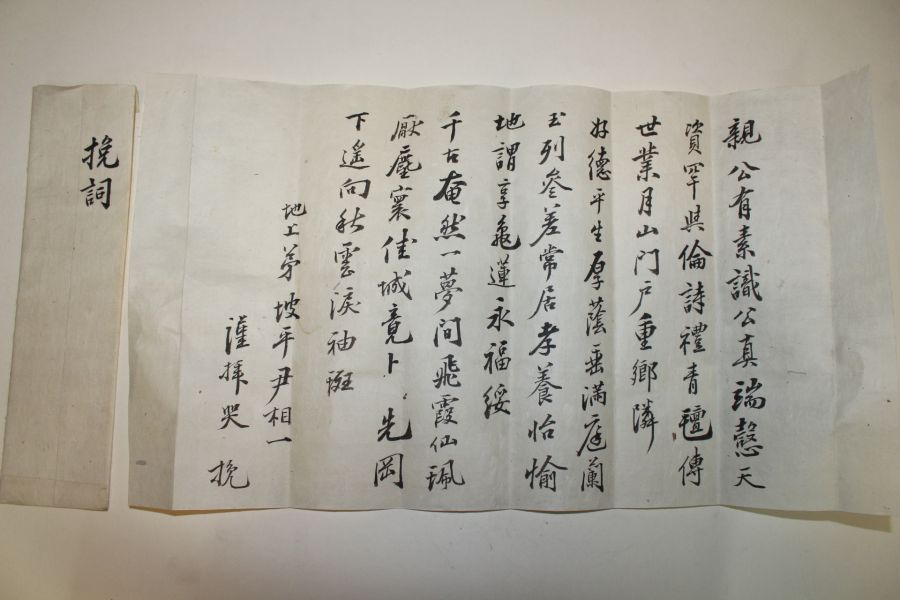 親公有素識公真端慤天
資罕與倫詩禮青氊傳
世業月山門戶重鄉隣
好德平生厚蔭垂滿庭蘭
玉列參差常居孝養怡愉
地謂享龜蓮永福綏
千古奄然一夢間飛霞仙珮
厭塵寰佳城竟卜先岡
下遙向秋雲淚袖斑
地上弟坡平尹相一
謹拜哭挽
挽詞